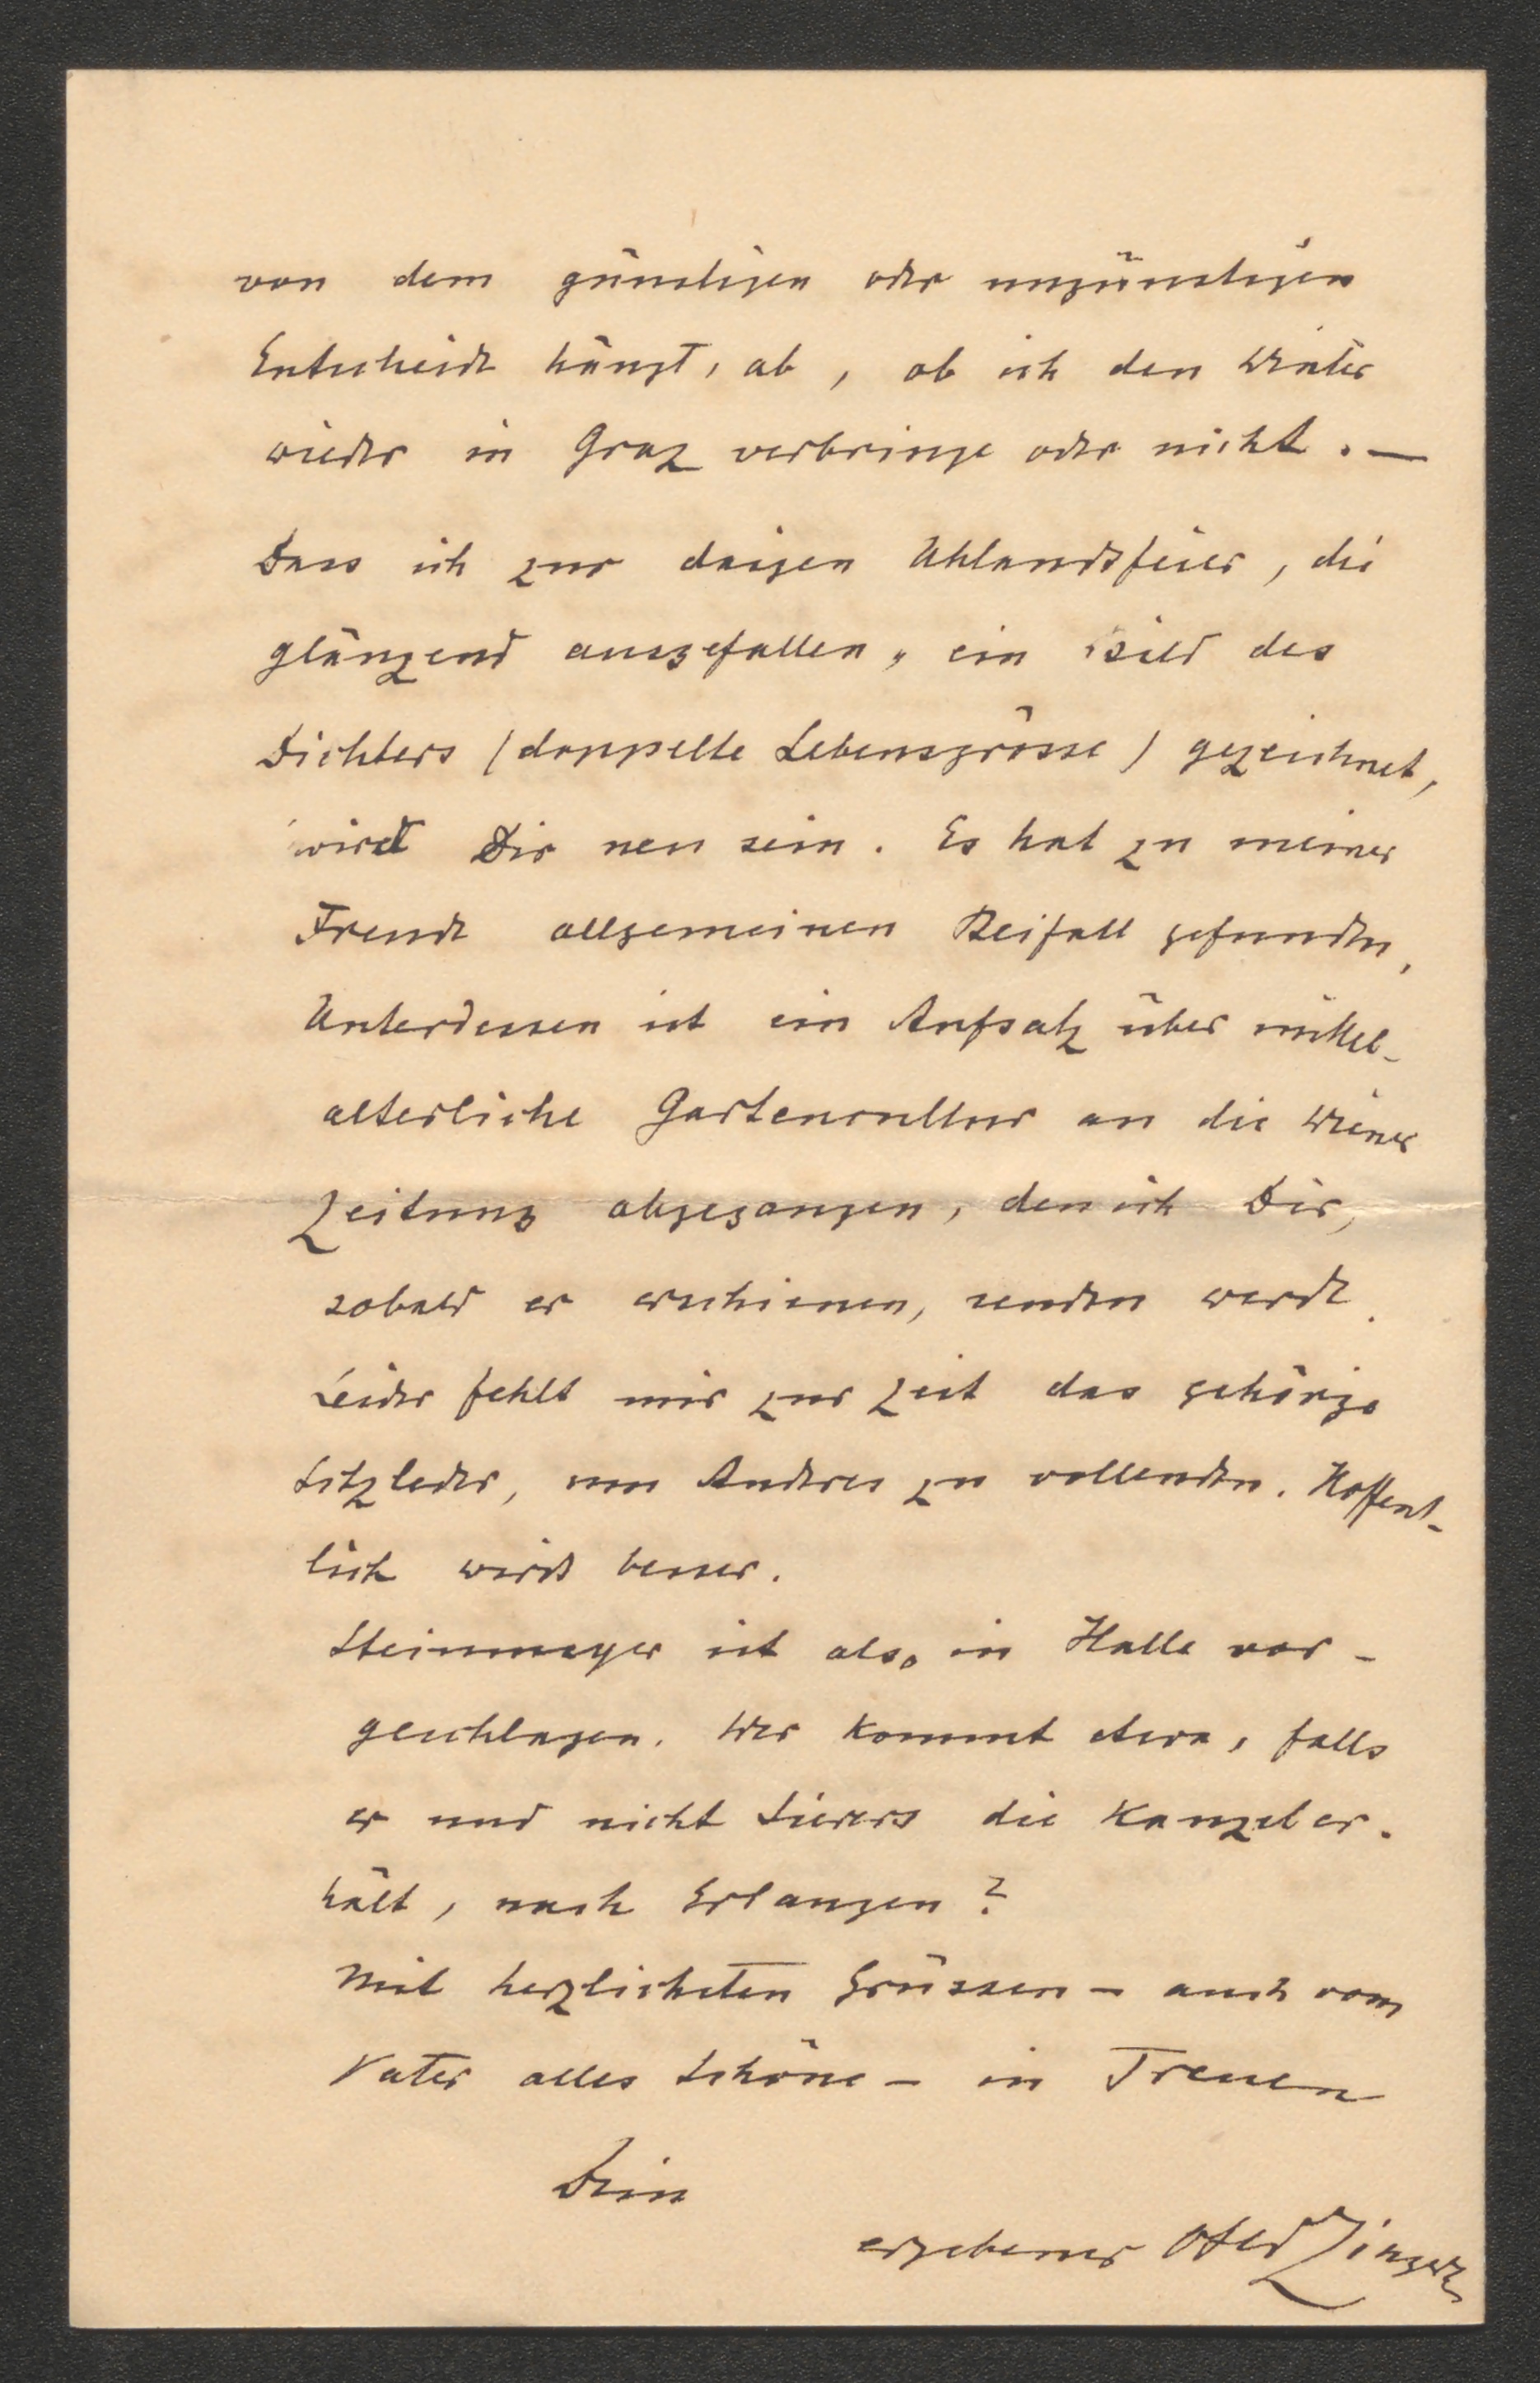 von dem günstigen oder ungünstigen
Entscheide hängt, ab, ob ich den Winter
wieder in Graz verbringe oder nicht. —
Dass ich zur daigen Uhlandsfeier, die
glänzend ausgefallen, ein Bild des
Dichters (doppelte Lebensgrösse) gezeichnet,
wird Dir neu sein. Es hat zu meiner
Freude allgemeinen Beifall gefunden,
Unterdessen ist ein Aufsatz über mittel-
alterliche Gartencultur an die Wiener
Zeitung abgegangen, den ich Dir,
sobald er erschienen, senden werde.
Leider fehlt mir zur Zeit das gehörige
Sitzleder, um Anderes zu vollenden. Hoffent-
lich wirds besser.
Steinmeyer ist also in Halle vor-
geschlagen. Wer kommt etwa, falls
er und nicht Sievers die Kanzel er-
hält, nach Erlangen?
Mit herzlichsten Grüssen – auch vom
Vater alles Schöne – in Treuen
Dein
ergebener Osw Zingerle